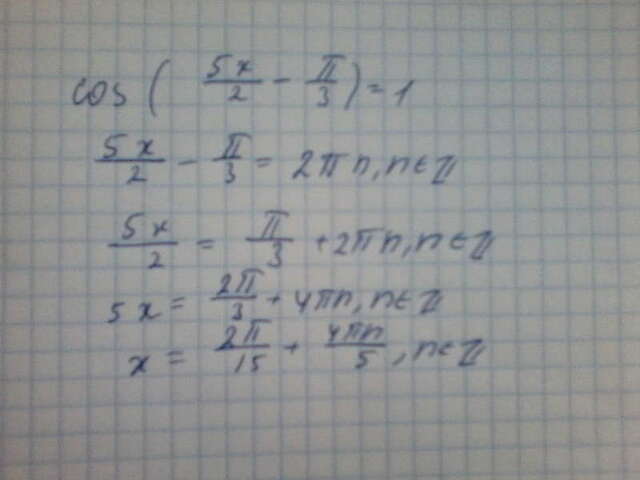 cos(5x/2 - π/3) = 1
5x/2 - π/3 = 2πn, n∈Z
5x/2 = π/3 + 2πn, n∈Z
5x = 2π/3 + 4πn, n∈Z
x = 2π/15 + 4πn/5, n∈Z